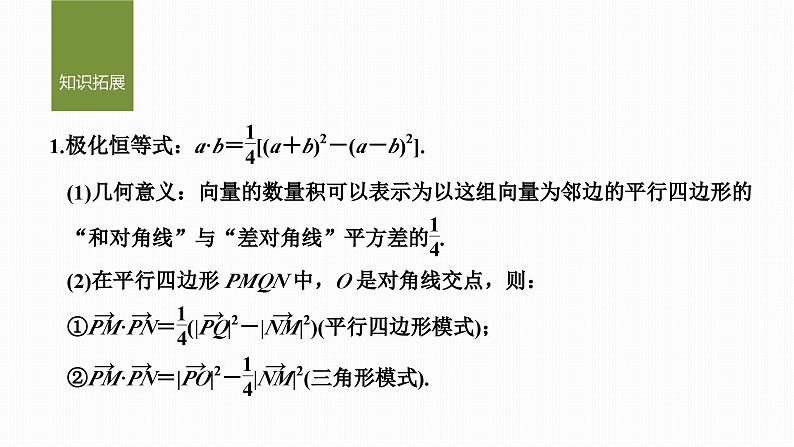 知识拓展
1.极化恒等式：a·b＝\frac{1}{4}[(a＋b)²－(a－b)²].
(1)几何意义：向量的数量积可以表示为以这组向量为邻边的平行四边形的
“和对角线”与“差对角线”平方差的\frac{1}{4}.
(2)在平行四边形 PMQN 中，O 是对角线交点，则：
①\overrightarrow{PM}·\overrightarrow{PN}＝\frac{1}{4}(|\overrightarrow{PQ}|²－|\overrightarrow{NM}|²)(平行四边形模式)；
②\overrightarrow{PM}·\overrightarrow{PN}＝|\overrightarrow{PO}|²－\frac{1}{4}|\overrightarrow{NM}|²(三角形模式).